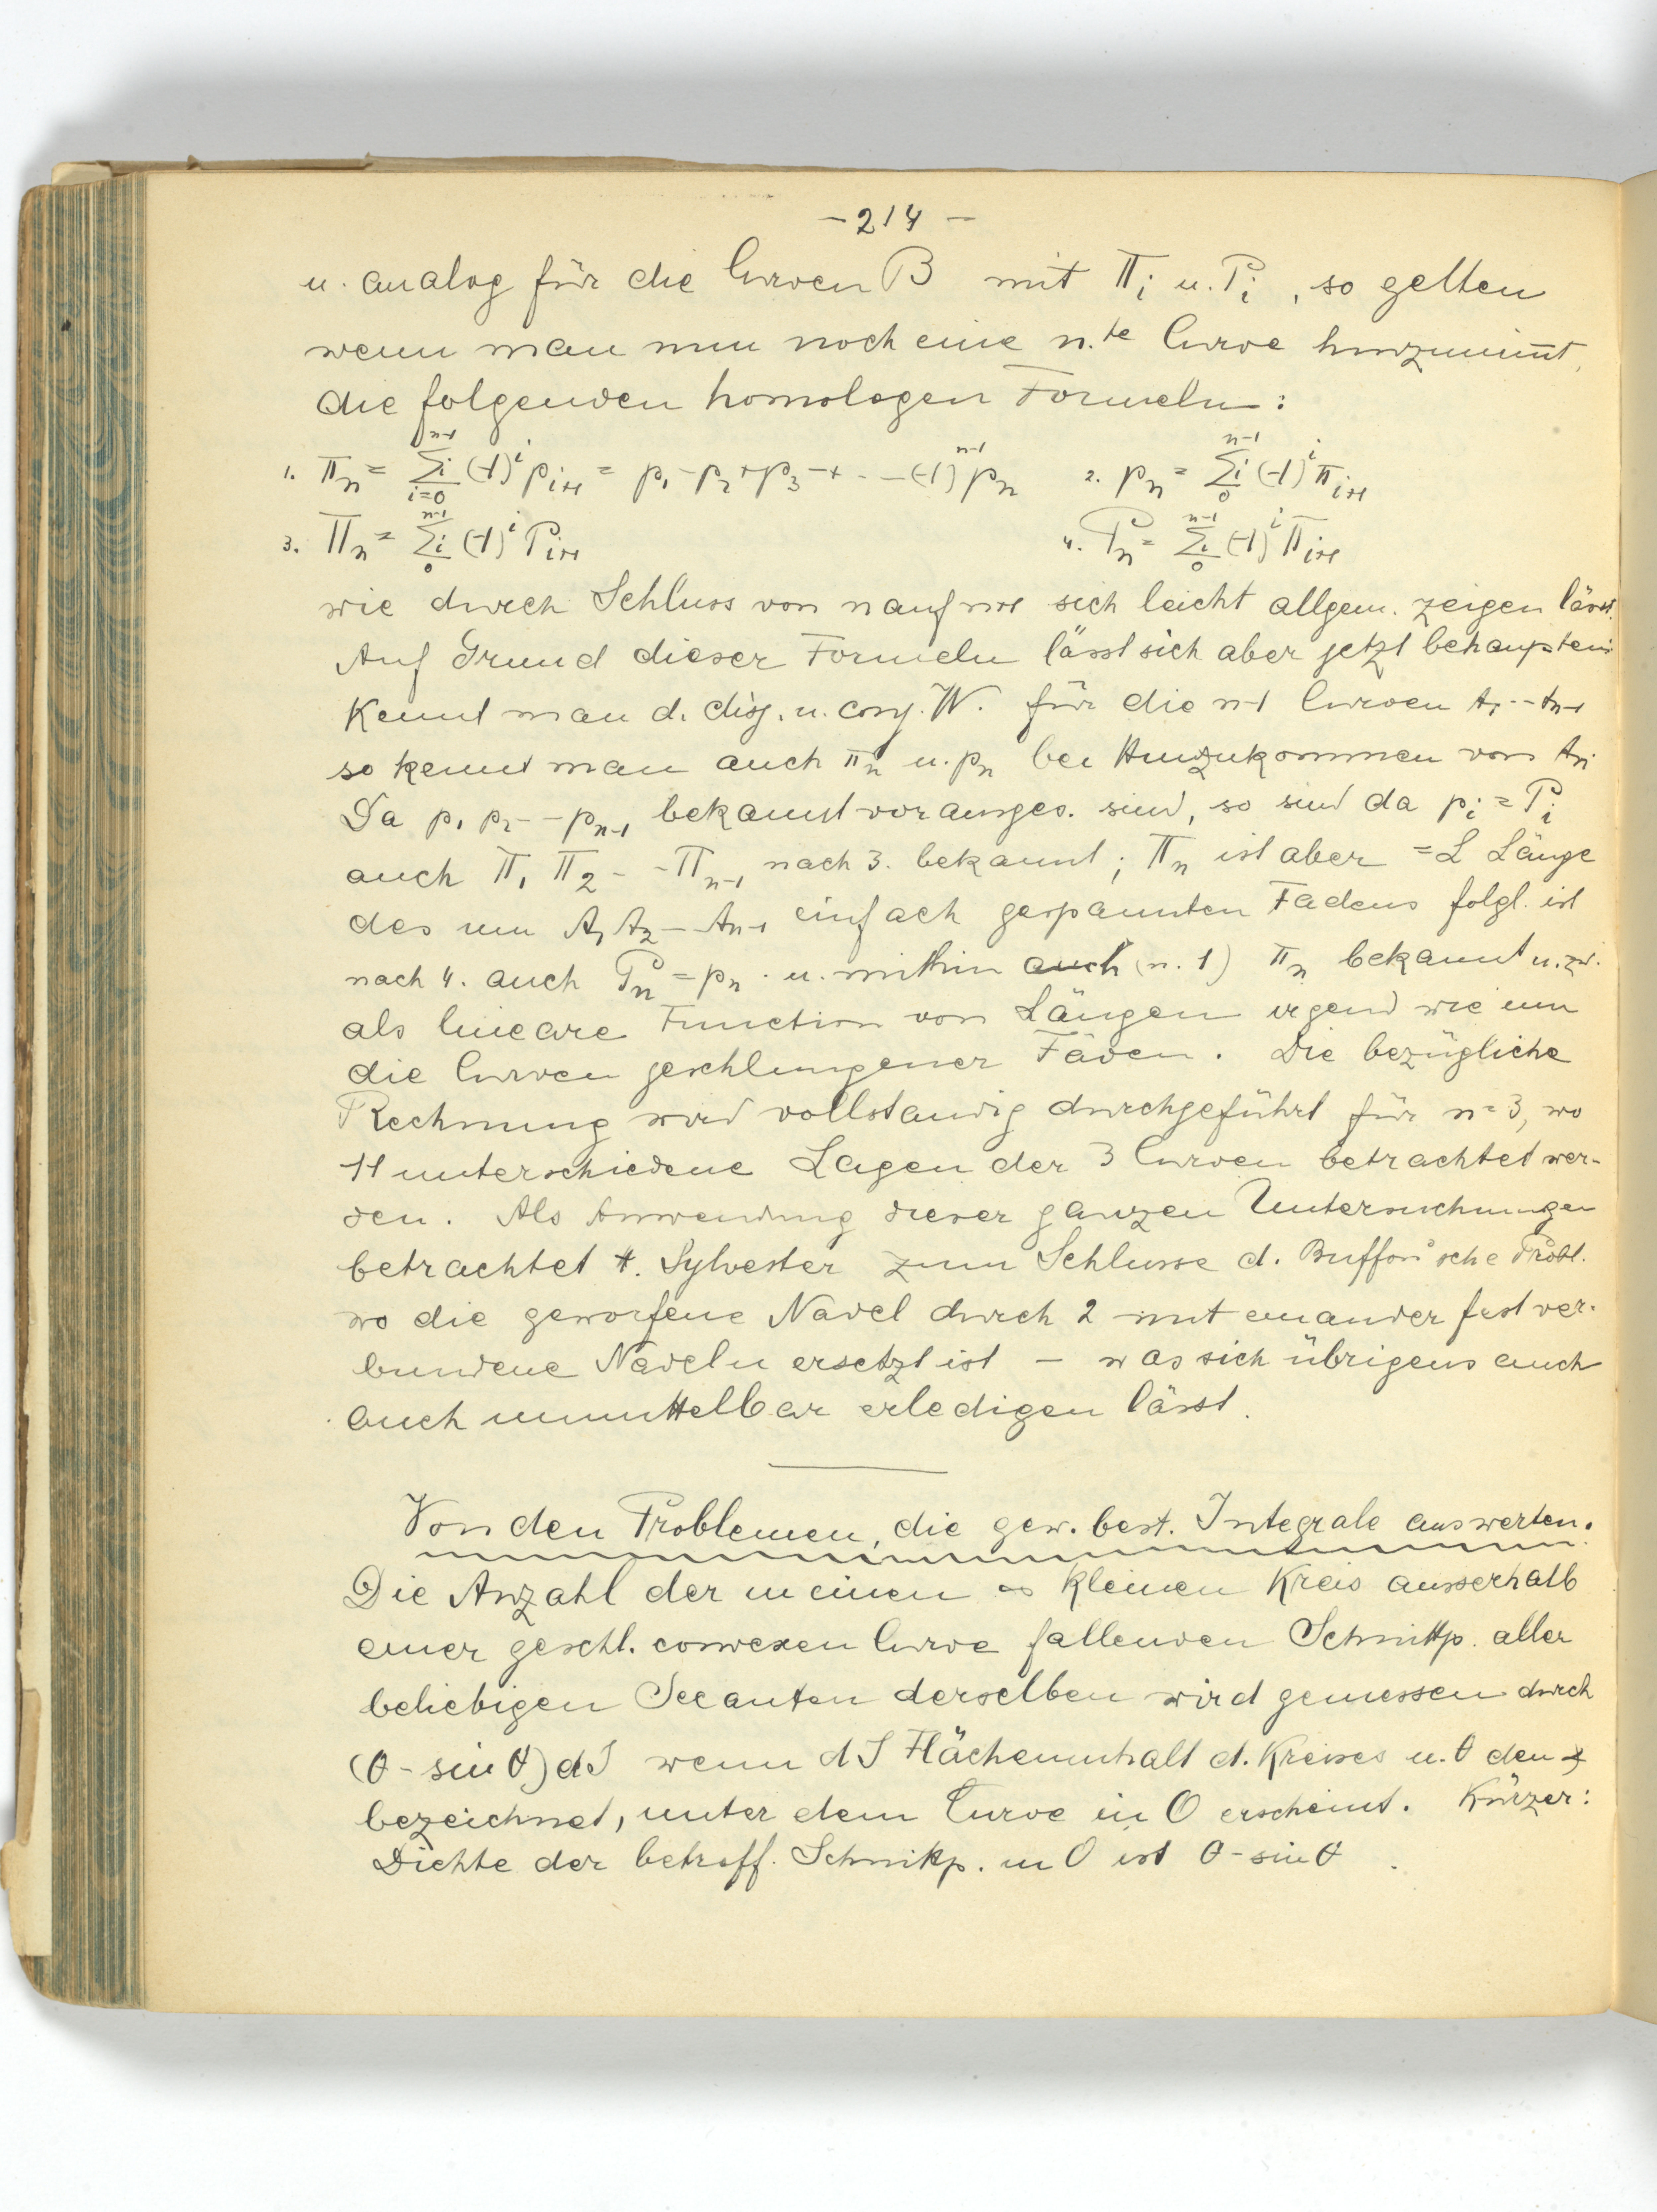 - 214 -
u. analog für die Curven B mit Π_i u. P_i, so gelten
wenn man nun noch eine n.te Curve hinzunim̄t,
die folgenden homologen Formeln:
1. π_n = Σ_{i=0}^{n-1} (-1)^i p_{i+1} = p_1 - p_2 + p_3 - + - - (-1)^{n-1} p_n 2. p_n = Σ_0^{n-1} (-1)^i π_{i+1}
3. Π_n = Σ_0^{n-1} (-1)^i P_{i+1} 4. P_n = Σ_0^{n-1} (-1)^i Π_{i+1}
wie durch Schluss von n auf n+1 sich leicht allgem. zeigen lässt.
Auf Grund dieser Formeln lässt sich aber jetzt behaupten:
Kennt man d. disj. u. conj. W. für die n-1 Curven A_1 -- A_{n-1}
so kennt man auch π_n u. p_n bei Hinzukommen von A_n.
Da p_1 p_2 -- p_{n-1} bekannt vorausges. sind, so sind da p_i = P_i
auch Π_1 Π_2 -- Π_{n-1} nach 3. bekannt; Π_n ist aber = L Länge
des um A_1 A_2 -- A_{n-1} einfach gespannten Fadens folgl. ist
nach 4. auch P_n = p_n . u. mithin auch (n. 1) π_n bekannt u. zw.
als lineare Function von Längen irgend wie um
die Curven geschlungener Fäden. Die bezügliche
Rechnung wird vollständig durchgeführt für n=3, wo
11 unterschiedene Lagen der 3 Curven betrachtet wer-
den. Als Anwendung dieser ganzen Untersuchungen
betrachtet H. Sylvester zum Schlusse d. Buffon'sche Probl.
wo die geworfene Nadel durch 2 mit einander fest ver-
bundene Nadeln ersetzt ist — was sich übrigens auch
auch unmittelbar erledigen lässt.
Von den Problemen, die gew. best. Integrale auswerten.
Die Anzahl der in einen ∞ kleinen Kreis ausserhalb
einer geschl. convexen Curve fallenden Schnittp. aller
beliebigen Secanten derselben wird gemessen durch
(θ - sin θ) dJ wenn dJ Flächeninhalt d. Kreises u. θ den ∢
bezeichnet, unter dem Curve in O erscheint. Kürzer:
Dichte der betreff. Schnittp. in O ist θ - sin θ.